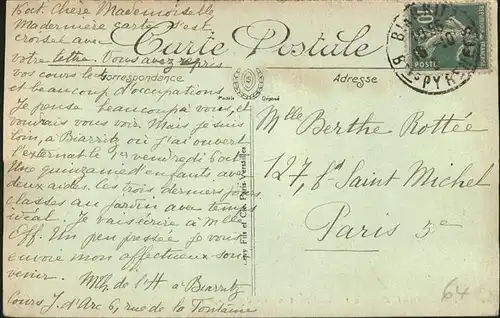 8 oct. Chère Mademoiselle
Ma dernière carte s'est
croisée avec
votre lettre. Vous avez repris
vos cours
et beaucoup d'occupations.
Je pense beaucoup à vous, et
voudrais vous voir. Mais je suis
loin, à Biarritz, où j'ai ouvert
l'externat le 1er vendredi 6 oct.
Une quinzaine d'enfants avec
deux aides. les trois derniers jours
classes au jardin avec temps
idéal. Je vais écrire à Mlle
Eff. Un peu pressée je vous
envoie mon affectueux sou-
venir.
de l'H à Biarritz
Cours J. d'Arc 6, rue de la Fontaine
Carte Postale
Correspondance
Adresse
Modèle Déposé
Fils et Cie, Paris-Versailles
POSTE
Mlle Berthe Rottée
127, Bd Saint Michel
Paris 5e
64